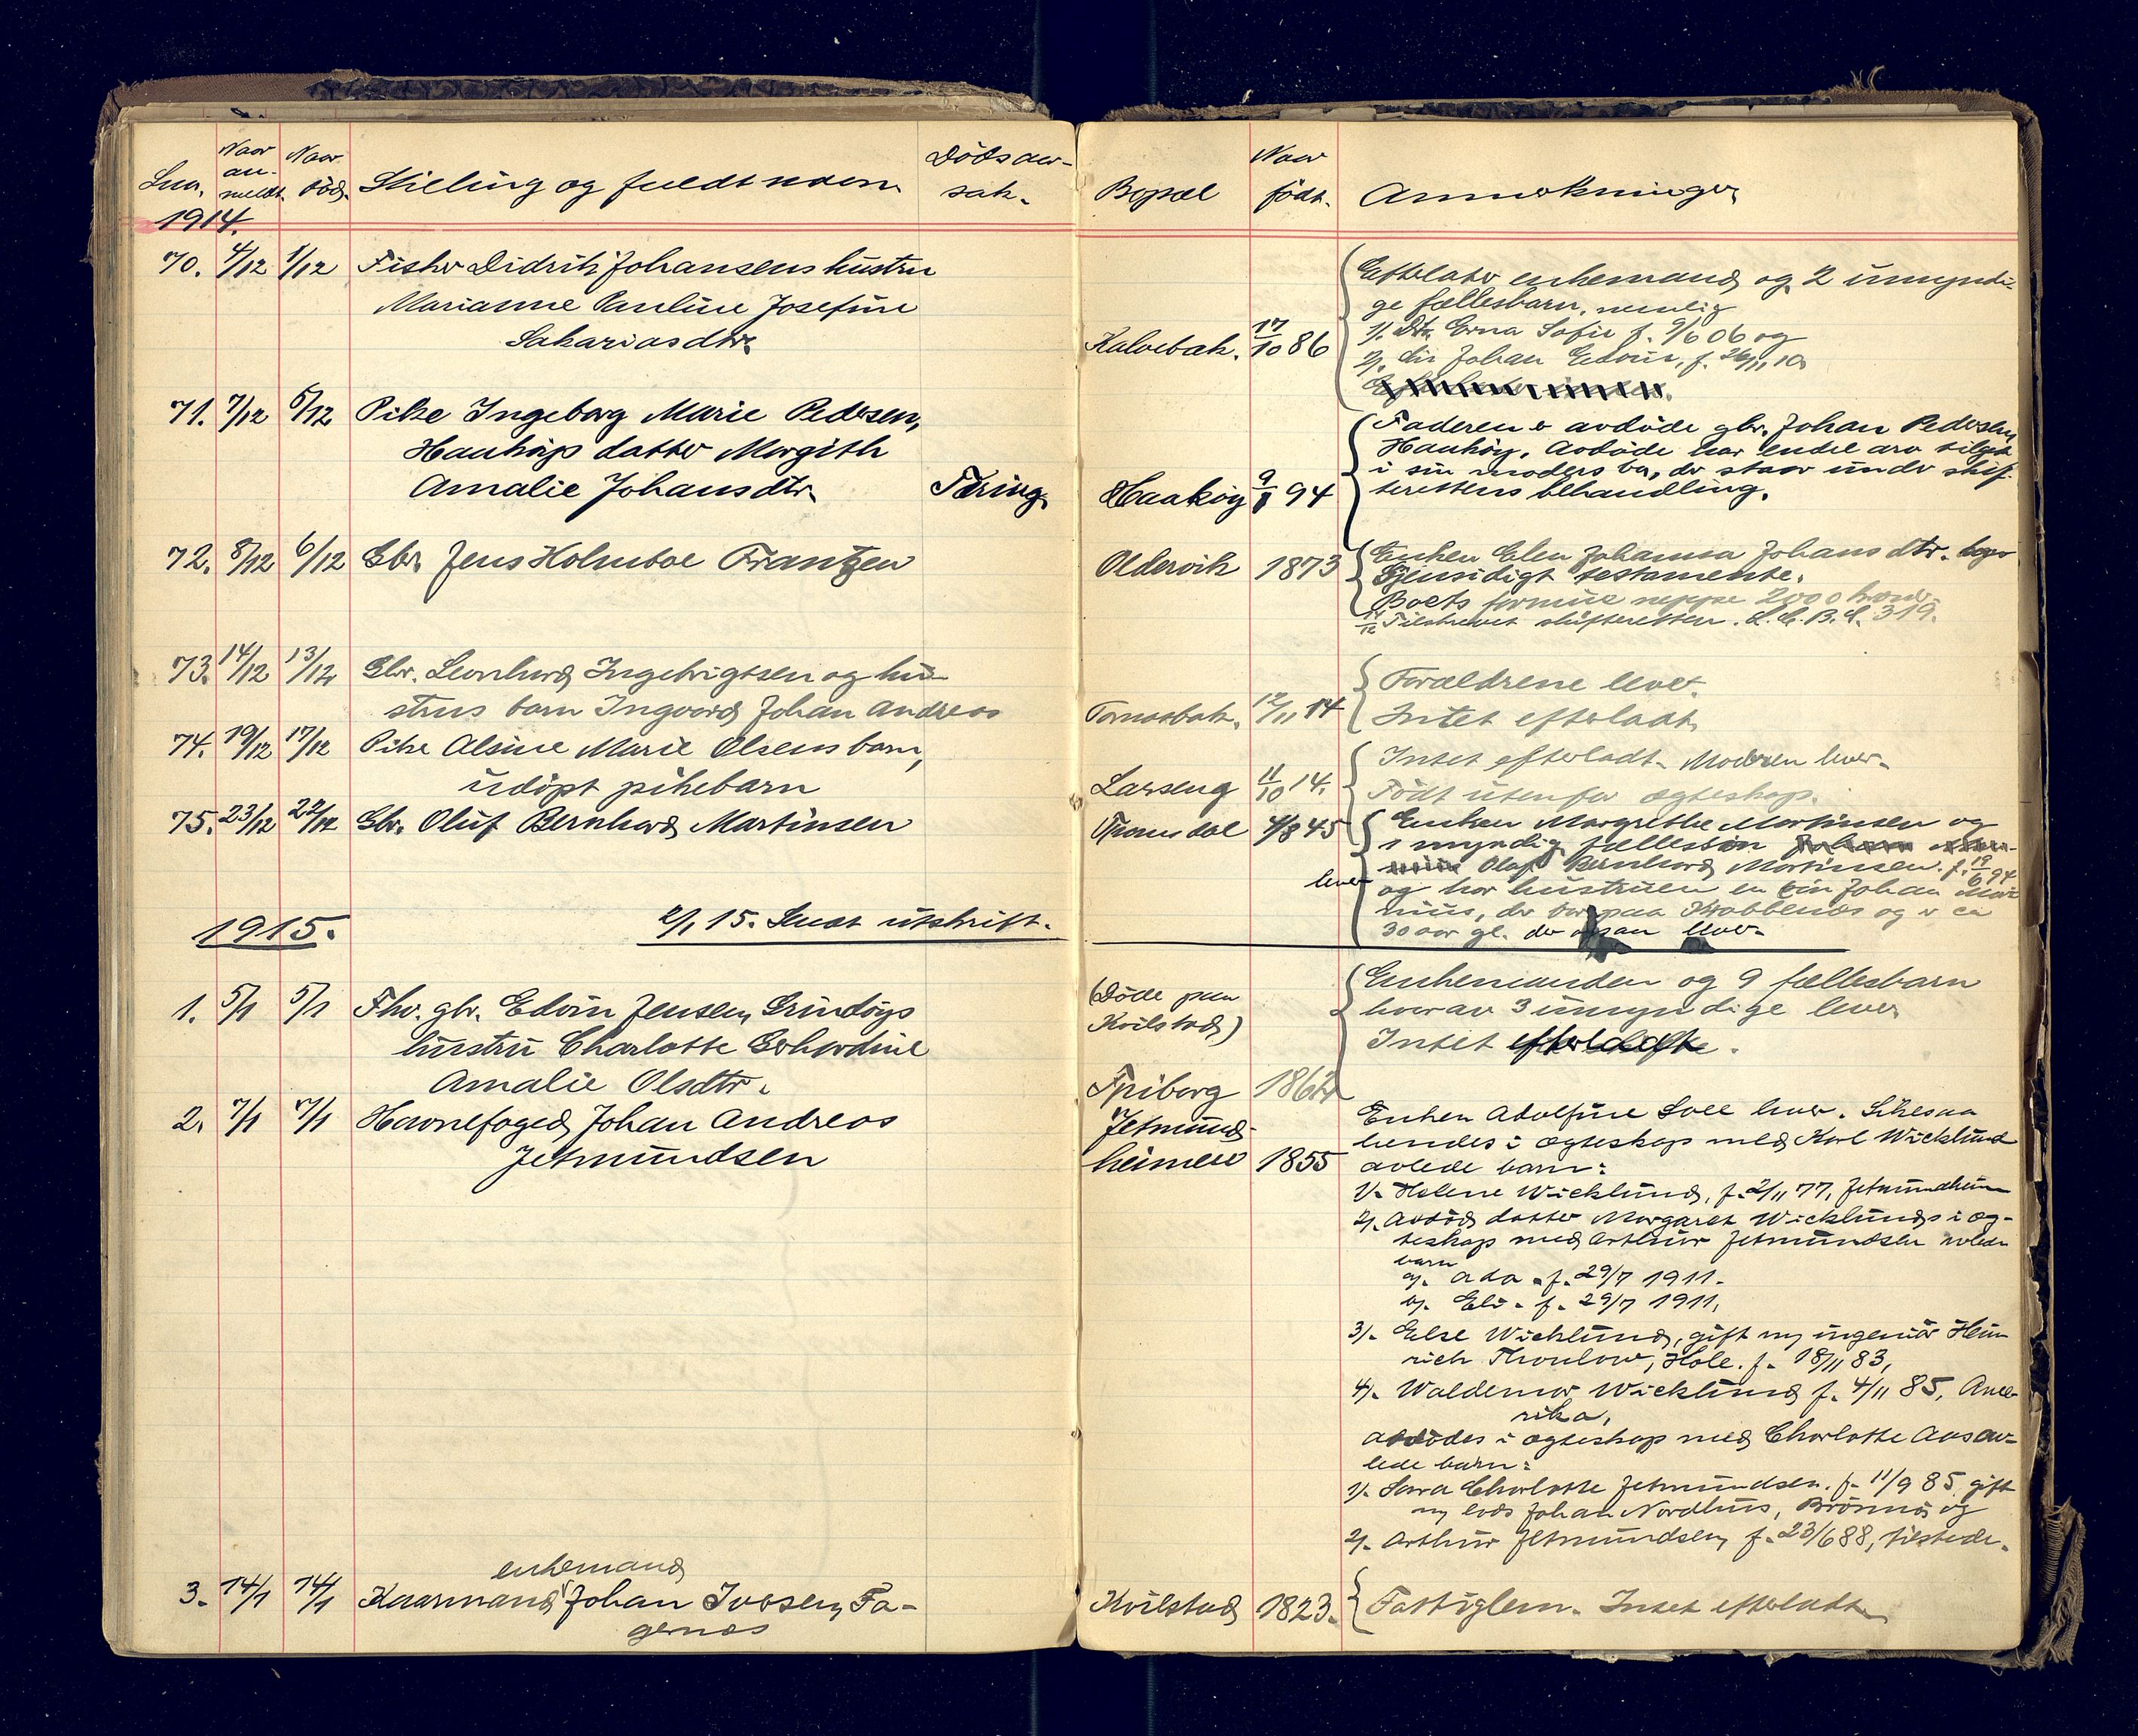 Lnr.
Naar an-
meldt.
Naar
död.
Stilling og fuldt navn
Dödsaar-
sak.
Bopæl
Naar
födt.
Anmerkninger
1914.
70. 4/12 1/12 Fisker Didrik Johansens hustru
Marianne Pauline Josefine
Sakariasdtr.
Kalvebak. 17/10 86
Efterlater enkemand og 2 umyndi-
ge fællesbarn, nemlig
1). Dtr. Erna Sofie f. 9/6 06 og
2). Johan Edvin, f. 26/11 10
71. 7/12 5/12 Pike Ingeborg Marie Pedersen,
Haakøy datter Margith
Amalie Johansdtr.
Tæring
Haakøy 94
Faderen er avdöde gbr. Johan Pedersen
Haakøy. Avdöde har endel arv tilgode
i sin moders bo, der staar under skif-
terettens behandling.
72. 8/12 6/12 Gbr. Jens Holmboe Frantzen
Oldervik 1873
Enken Elen Johanna Johansdtr.
Gjensidigt testamente.
Boets formue neppe 2000 kroner.
Tilskrevet skifteretten. 319.
73. 14/12 13/12 Gbr. Leonhard Ingebrigtsen og hu-
strus barn Ingvard Johan Andreas
12/11 14
Forældrene lever.
Intet efterladt.
74. 19/12 17/12 Pike Alsine Marie Olsens barn,
udöpt pikebarn
Larseng 11/10 14.
Intet efterladt. Moderen lever.
Födt utenfor ægteskap.
75. 23/12 22/12 Gbr. Oluf Bernhard Martinsen
Tromsdal 4/8 45
Enken Margrethe Martinsen og
1 myndig fællessön
Olaf Bernhard Martinsen. f. 19/6 94
lever
og har hustruen en sön Johan Mari-
nius, der bor paa Krabbenes og er ca
30 aar gl. der ogsaa lever.
2/1 15. Sendt utskrift.
1915.
1. 5/1 5/1 Fhv. gbr. Edvin Jensen Grindöys
hustru Charlotte Gerhardine
Amalie Olsdtr.
(Döde paa
Kvilstad)
1862
Enkemanden og 9 fællesbarn
hvorav 3 umyndige lever
Intet
2. 7/1 7/1 Havnefoged Johan Andreas
Jetmundsen
Jetmund-
heimen 1855
Enken Adolfine Soll lever. Likesaa
hendes i ægteskap med Karl Wicklund
avlede barn:
1). Helene Wicklund, f. 2/11 77, Jetmundheim
2). Avdöd datter Margaret Wicklunds i æg-
teskap med Arthur Jetmundsen avlede
barn
a). Ada - f. 29/7 1911.
b). Eli - f. 29/7 1911.
3). Else Wicklund, gift m/ ingeniör Hein-
rich Thoulow, Hole. f. 18/11 83,
4). Waldemar Wicklund f. 4/11 85, Ame-
rika,
avdödes i ægteskap med Charlotte Aas av-
lede barn:
1). Sara Charlotte Jetmundsen. f. 11/9 85, gift
m/ lods Johan Nordhus, Brönnö og
2). Arthur Jetmundsen, f. 23/6 88, tilstede.
enkemand
3. 14/1 14/1 Kaarmand Johan Iversen, Fa-
gernes
Kvilstad 1823.
Fattiglem. Intet efterladt